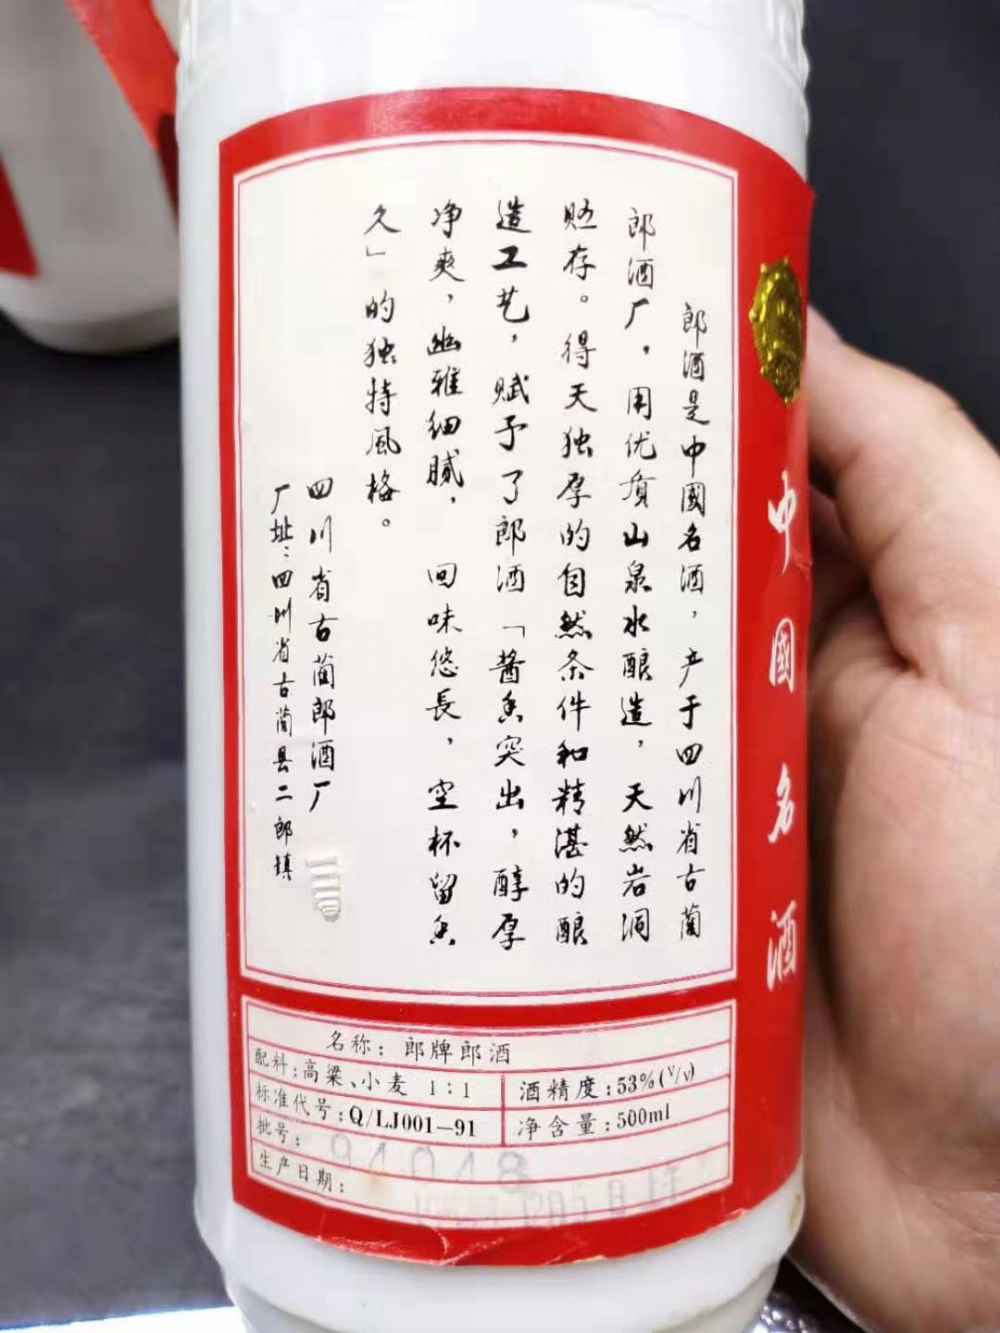 郎酒是中國名酒，产于四川省古蔺
郎酒厂，用优质山泉水酿造，天然岩洞
贮存。得天独厚的自然条件和精湛的酿
造工艺，赋予了郎酒「酱香突出，醇厚
净爽，幽雅细腻，回味悠長，空杯留香
久」的独特風格。
四川省古蔺郎酒厂
厂址：四川省古蔺县二郎镇
中國名酒
名称：郎牌郎酒
配料：高粱、小麦 1:1
酒精度：53%(V/V)
标准代号：Q/LJ001-91
净含量：500ml
批号：
生产日期：